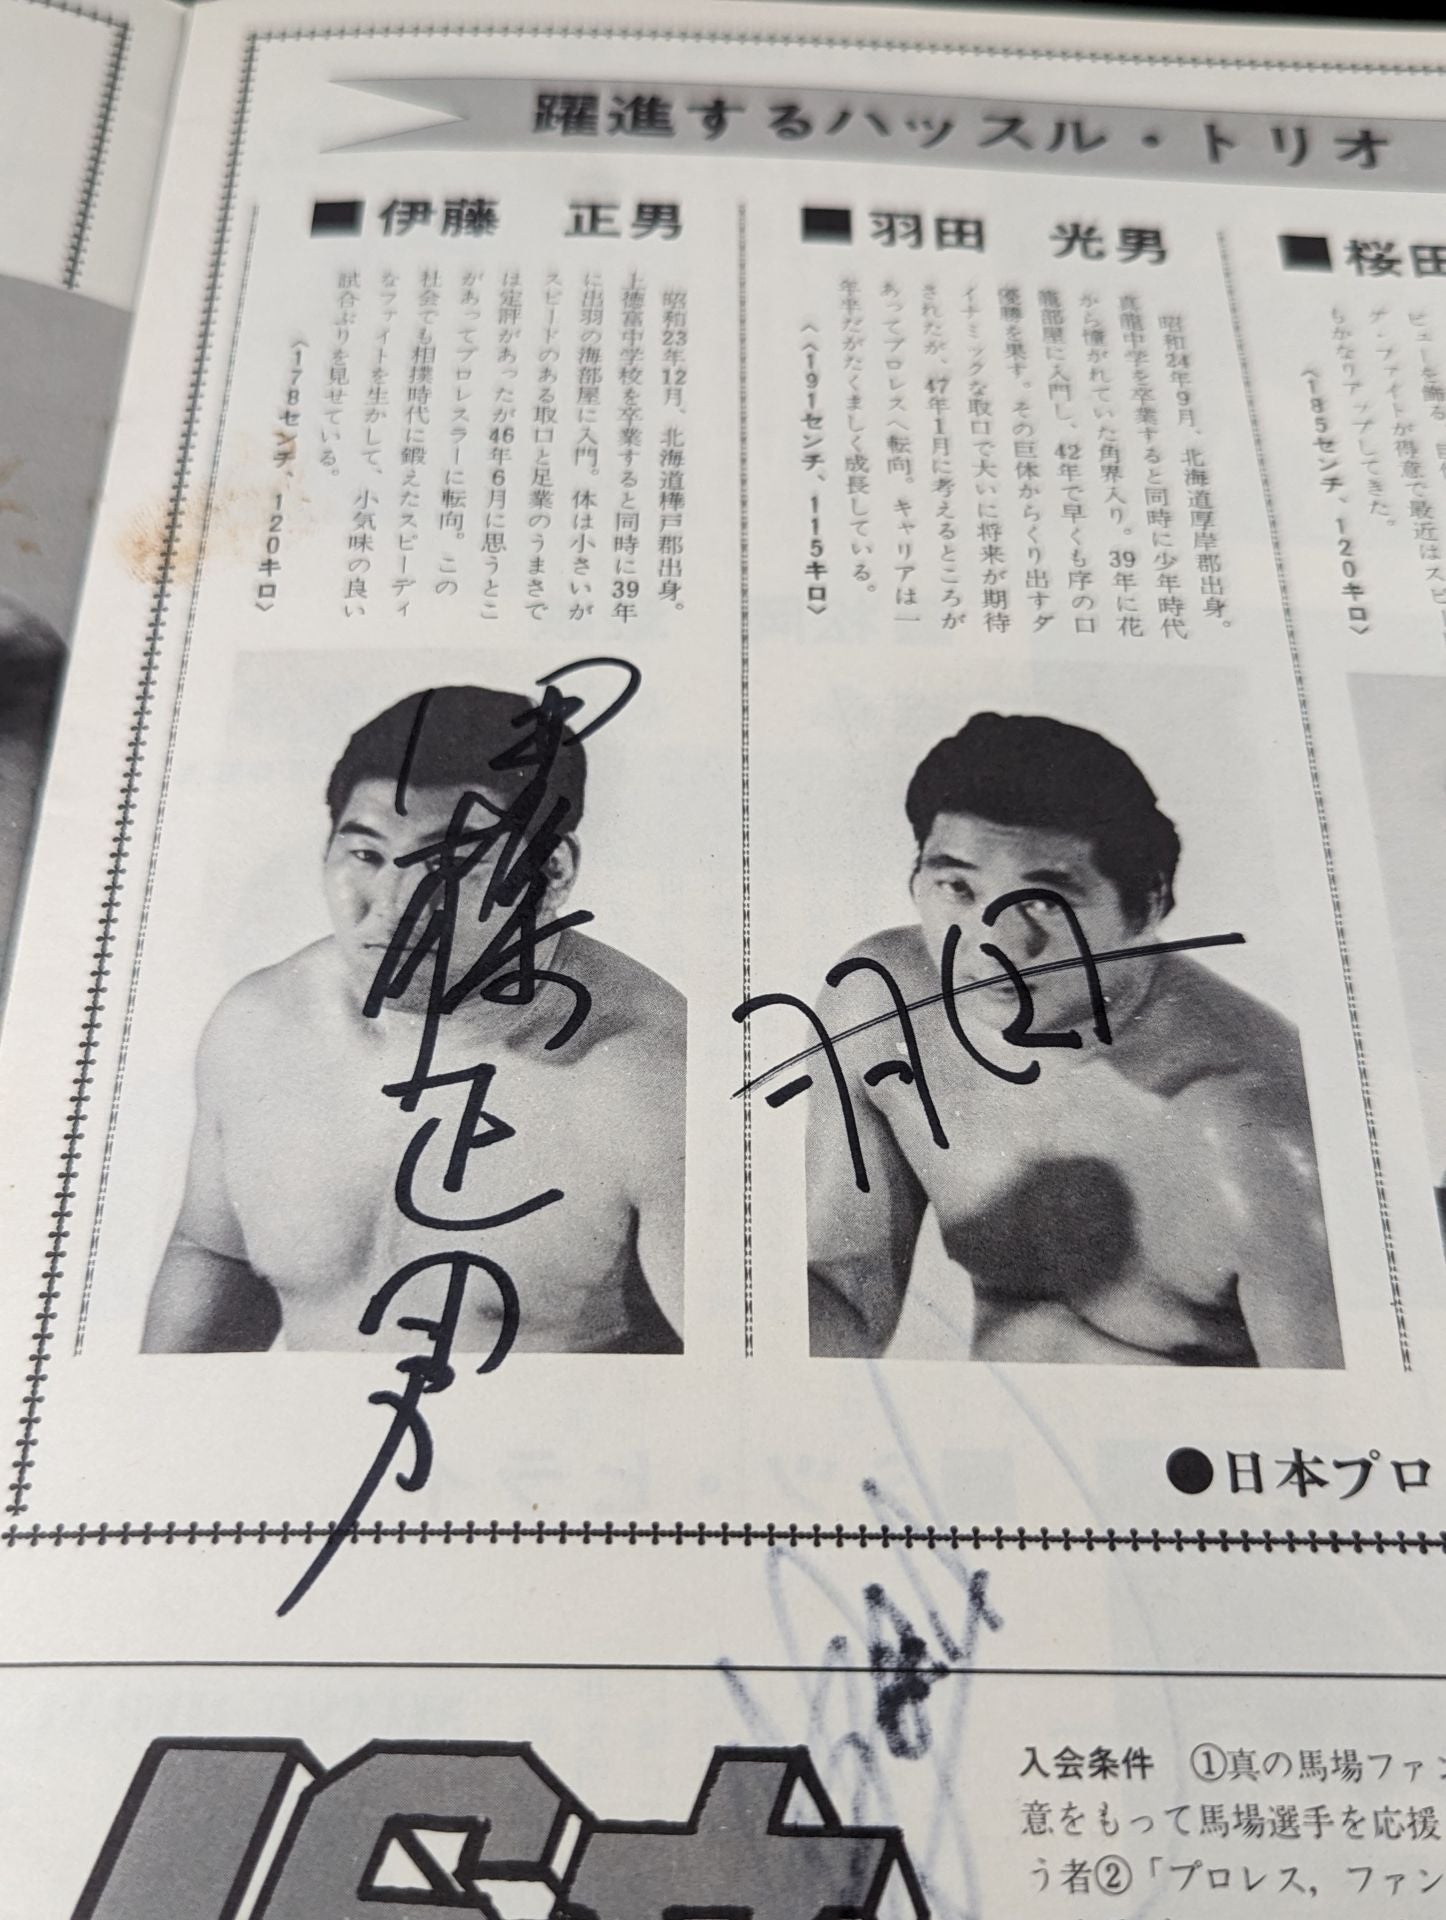 躍進するハッスル・トリオ
■伊藤　正男
昭和23年12月、北海道樺戸郡出身。
上徳富中学校を卒業すると同時に39年
に出羽の海部屋に入門。体は小さいが
スピードのある取口と足業のうまさで
は定評があったが46年6月に思うとこ
があってプロレスラーに転向。この
社会でも相撲時代に鍛えたスピーディ
なファイトを生かして、小気味の良い
試合ぶりを見せている。
〈178センチ、120キロ〉
伊藤正男
■羽田　光男
昭和24年9月、北海道厚岸郡出身。
真龍中学を卒業すると同時に少年時代
から憧がれていた角界入り。39年に花
籠部屋に入門し、42年で早くも序の口
優勝を果す。その巨体からくり出すダ
イナミックな取口で大いに将来が期待
されたが、47年1月に考えるところが
あってプロレスへ転向。キャリアは一
年半だがたくましく成長している。
〈191センチ、115キロ〉
羽田
■桜田
ビューを飾る。
グ・ファイトが得意で最近はスピ
もかなりアップしてきた。
〈185センチ、120キロ〉
●日本プロ
入会条件　①真の馬場ファン
意をもって馬場選手を応援
う者②「プロレス，ファン